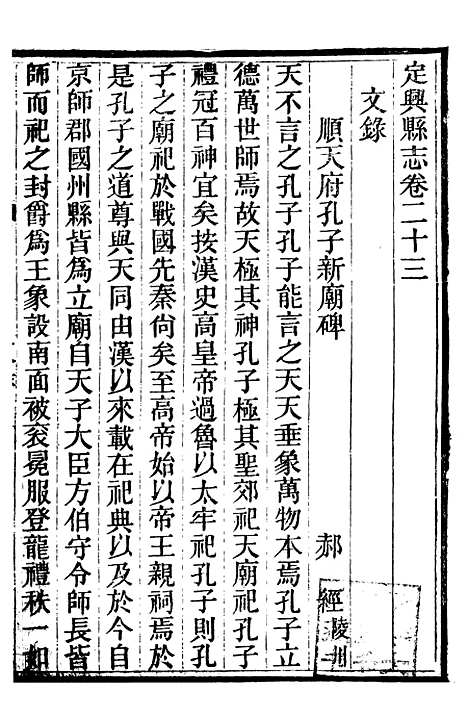 定興縣志卷二十三
文錄
順天府孔子新廟碑
郝 經 陵川
天不言之孔子孔子能言之天天垂象萬物本焉孔子立
德萬世師焉故天極其神孔子極其聖郊祀天廟祀孔子
禮冠百神宜矣按漢史高皇帝過魯以太牢祀孔子則孔
子之廟祀於戰國先秦尙矣至高帝始以帝王親祠焉於
是孔子之道尊與天同由漢以來載在祀典以及於今自
京師郡國州縣皆爲立廟自天子大臣方伯守令師長皆
師而祀之封爵爲王象設南面被袞冕服登龍禮秩一如